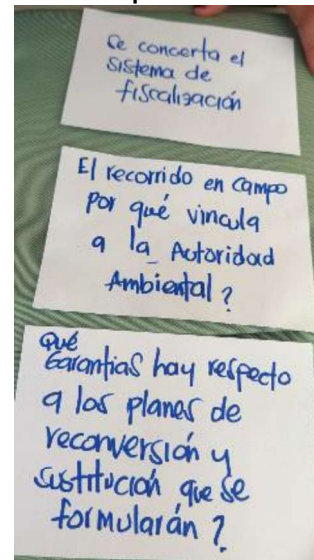 Se concerta el
sistema de
fiscalización
El recorrido en campo
por qué vincula
a la Autoridad
Ambiental?
Qué
Garantías hay respecto
a los planes de
reconversión y
sustitución que se
formularán?